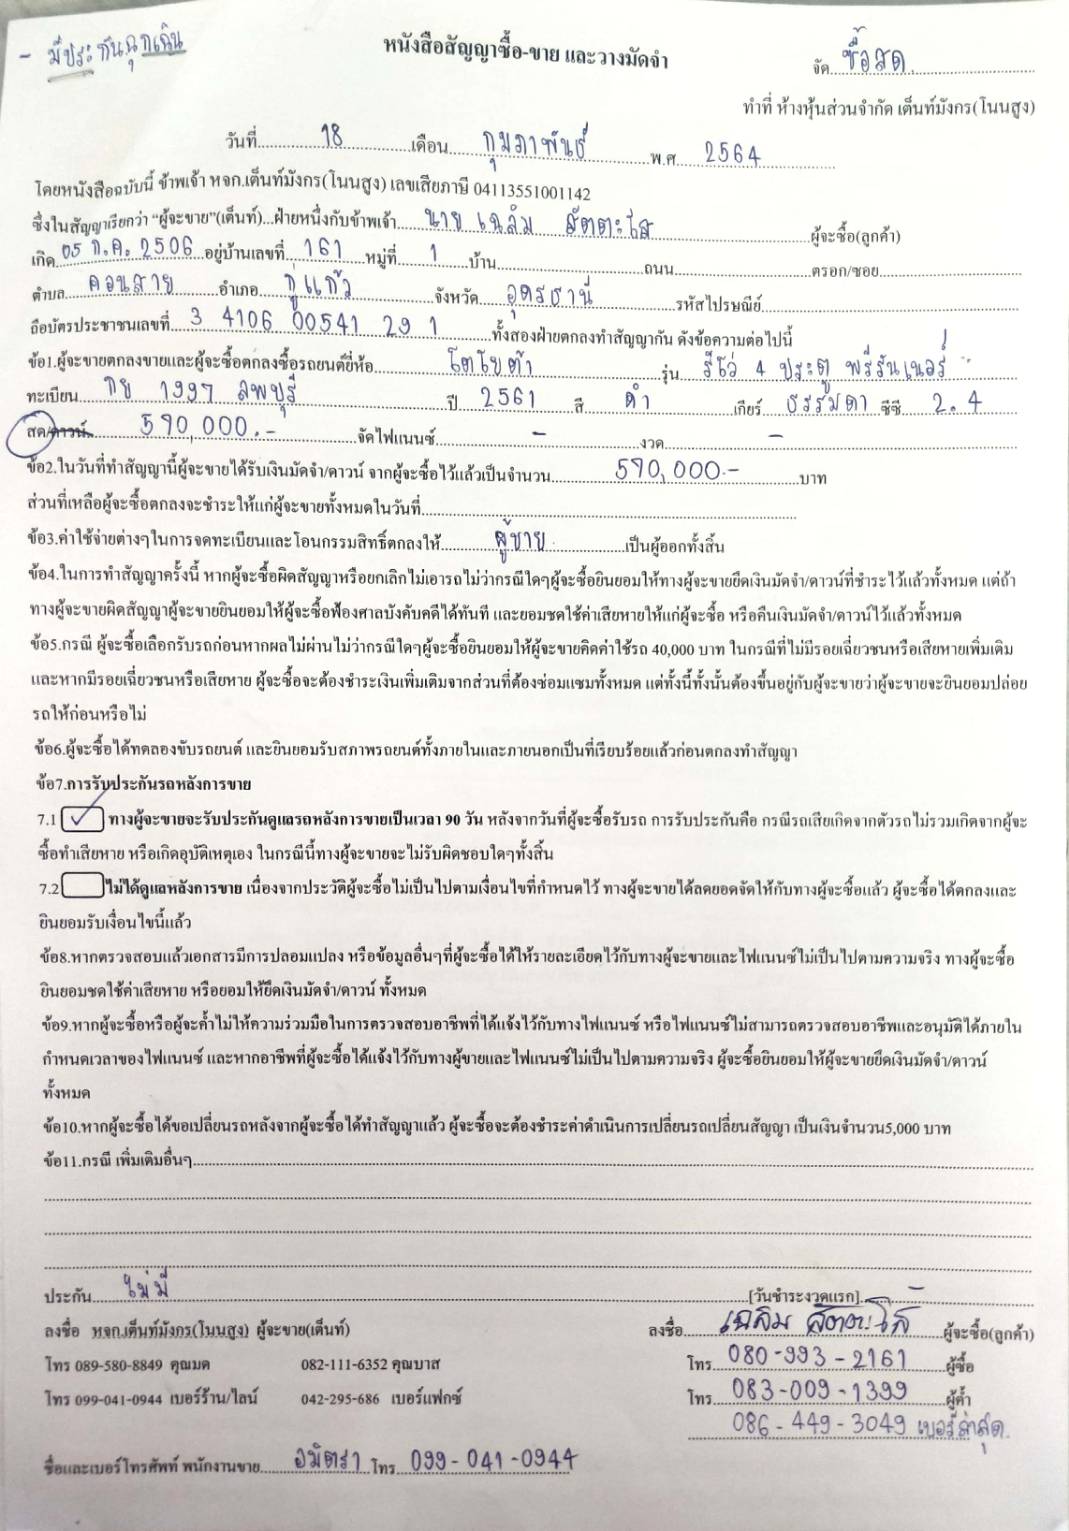 - มีประกันฉุกเฉิน
หนังสือสัญญาซื้อ-ขาย และวางมัดจำ
จัด ซื้อสด
ทำที่ ห้างหุ้นส่วนจำกัด เต็นท์มังกร(โนนสูง)
วันที่ 18 เดือน กุมภาพันธ์ พ.ศ 2564
โดยหนังสือฉบับนี้ ข้าพเจ้า หจก.เต็นท์มังกร(โนนสูง) เลขเสียภาษี 04113551001142
ซึ่งในสัญญาเรียกว่า “ผู้จะขาย”(เต็นท์)...ฝ่ายหนึ่งกับข้าพเจ้า นาย เฉลิม สัตตะโส ผู้จะซื้อ(ลูกค้า)
เกิด 05 ก.ค. 2506 อยู่บ้านเลขที่ 161 หมู่ที่ 1 บ้าน ถนน ตรอก/ซอย
ตำบล คอนสาย อำเภอ กู่แก้ว จังหวัด อุดรธานี รหัสไปรษณีย์
ถือบัตรประชาชนเลขที่ 3 4106 00541 29 1 ทั้งสองฝ่ายตกลงทำสัญญากัน ดังข้อความต่อไปนี้
ข้อ1.ผู้จะขายตกลงขายและผู้จะซื้อตกลงซื้อรถยนต์ยี่ห้อ โตโยต้า รุ่น รีโว่ 4 ประตู พรีรันเนอร์
ทะเบียน กย 1997 ลพบุรี ปี 2561 สี ดำ เกียร์ ธรรมดา ซีซี 2.4
สด/ดาวน์ 590,000.- จัดไฟแนนซ์ - งวด -
ข้อ2.ในวันที่ทำสัญญานี้ผู้จะขายได้รับเงินมัดจำ/ดาวน์ จากผู้จะซื้อไว้แล้วเป็นจำนวน 590,000.- บาท
ส่วนที่เหลือผู้จะซื้อตกลงจะชำระให้แก่ผู้จะขายทั้งหมดในวันที่
ข้อ3.ค่าใช้จ่ายต่างๆในการจดทะเบียนและโอนกรรมสิทธิ์ตกลงให้ ผู้ขาย เป็นผู้ออกทั้งสิ้น
ข้อ4.ในการทำสัญญาครั้งนี้ หากผู้จะซื้อผิดสัญญาหรือยกเลิกไม่เอารถไม่ว่ากรณีใดๆผู้จะซื้อยินยอมให้ทางผู้จะขายยึดเงินมัดจำ/ดาวน์ที่ชำระไว้แล้วทั้งหมด แต่ถ้า
ทางผู้จะขายผิดสัญญาผู้จะขายยินยอมให้ผู้จะซื้อฟ้องศาลบังคับคดีได้ทันที และยอมชดใช้ค่าเสียหายให้แก่ผู้จะซื้อ หรือคืนเงินมัดจำ/ดาวน์ไว้แล้วทั้งหมด
ข้อ5.กรณี ผู้จะซื้อเลือกรับรถก่อนหากผลไม่ผ่านไม่ว่ากรณีใดๆผู้จะซื้อยินยอมให้ผู้จะขายคิดค่าใช้รถ 40,000 บาท ในกรณีที่ไม่มีรอยเฉี่ยวชนหรือเสียหายเพิ่มเติม
และหากมีรอยเฉี่ยวชนหรือเสียหาย ผู้จะซื้อจะต้องชำระเงินเพิ่มเติมจากส่วนที่ต้องซ่อมแซมทั้งหมด แต่ทั้งนี้ทั้งนั้นต้องขึ้นอยู่กับผู้จะขายว่าผู้จะขายจะยินยอมปล่อย
รถให้ก่อนหรือไม่
ข้อ6.ผู้จะซื้อได้ทดลองขับรถยนต์ และยินยอมรับสภาพรถยนต์ทั้งภายในและภายนอกเป็นที่เรียบร้อยแล้วก่อนตกลงทำสัญญา
ข้อ7.การรับประกันรถหลังการขาย
7.1 ✓ ทางผู้จะขายจะรับประกันดูแลรถหลังการขายเป็นเวลา 90 วัน หลังจากวันที่ผู้จะซื้อรับรถ การรับประกันคือ กรณีรถเสียเกิดจากตัวรถไม่รวมเกิดจากผู้จะ
ซื้อทำเสียหาย หรือเกิดอุบัติเหตุเอง ในกรณีนี้ทางผู้จะขายจะไม่รับผิดชอบใดๆทั้งสิ้น
7.2 ไม่ได้ดูแลหลังการขาย เนื่องจากประวัติผู้จะซื้อไม่เป็นไปตามเงื่อนไขที่กำหนดไว้ ทางผู้จะขายได้ลดยอดจัดให้กับทางผู้จะซื้อแล้ว ผู้จะซื้อได้ตกลงและ
ยินยอมรับเงื่อนไขนี้แล้ว
ข้อ8.หากตรวจสอบแล้วเอกสารมีการปลอมแปลง หรือข้อมูลอื่นๆที่ผู้จะซื้อได้ให้รายละเอียดไว้กับทางผู้จะขายและไฟแนนซ์ไม่เป็นไปตามความจริง ทางผู้จะซื้อ
ยินยอมชดใช้ค่าเสียหาย หรือยอมให้ยึดเงินมัดจำ/ดาวน์ ทั้งหมด
ข้อ9.หากผู้จะซื้อหรือผู้จะค้ำไม่ให้ความร่วมมือในการตรวจสอบอาชีพที่ได้แจ้งไว้กับทางไฟแนนซ์ หรือไฟแนนซ์ไม่สามารถตรวจสอบอาชีพและอนุมัติได้ภายใน
กำหนดเวลาของไฟแนนซ์ และหากอาชีพที่ผู้จะซื้อได้แจ้งไว้กับทางผู้ขายและไฟแนนซ์ไม่เป็นไปตามความจริง ผู้จะซื้อยินยอมให้ผู้จะขายยึดเงินมัดจำ/ดาวน์
ทั้งหมด
ข้อ10.หากผู้จะซื้อได้ขอเปลี่ยนรถหลังจากผู้จะซื้อได้ทำสัญญาแล้ว ผู้จะซื้อจะต้องชำระค่าดำเนินการเปลี่ยนรถเปลี่ยนสัญญา เป็นเงินจำนวน5,000 บาท
ข้อ11.กรณี เพิ่มเติมอื่นๆ
ประกัน ไม่มี [วันชำระงวดแรก] -
ลงชื่อ หจก.เต็นท์มังกร(โนนสูง) ผู้จะขาย(เต็นท์) ลงชื่อ เฉลิม สัตตะโส ผู้จะซื้อ(ลูกค้า)
โทร 089-580-8849 คุณมด 082-111-6352 คุณบาส โทร 080-993-2161 ผู้ซื้อ
โทร 099-041-0944 เบอร์ร้าน/ไลน์ 042-295-686 เบอร์แฟกซ์ โทร 083-009-1399 ผู้ค้ำ
086-449-3049 เบอร์ล่าสุด
ชื่อและเบอร์โทรศัพท์ พนักงานขาย อมิตรา โทร 099-041-0944